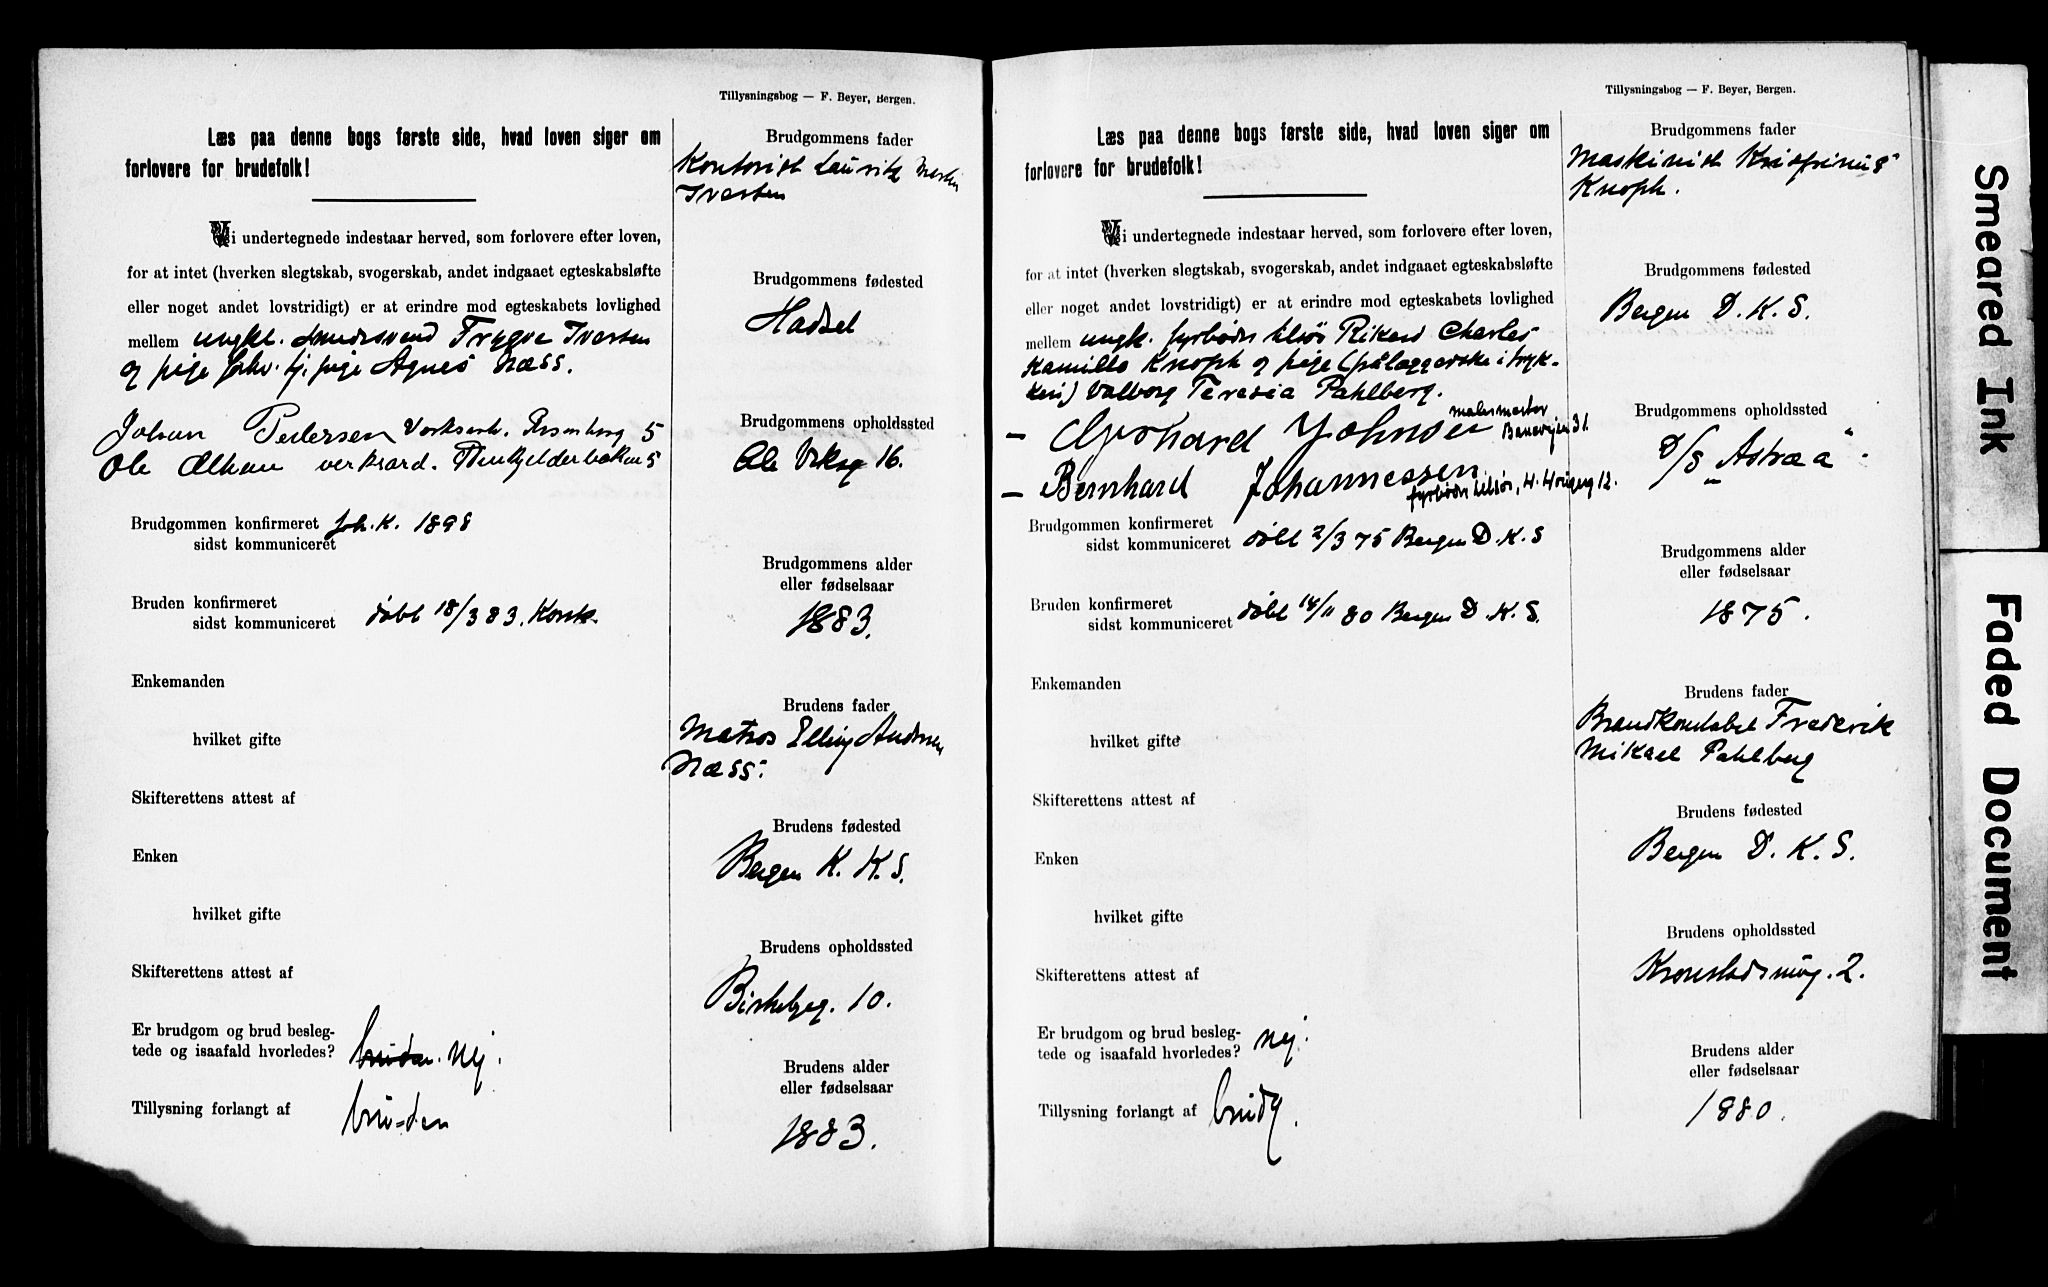 Tillysningsbog — F. Beyer, Bergen.
Læs paa denne bogs første side, hvad loven siger om
forlovere for brudefolk!
Vi undertegnede indestaar herved, som forlovere efter loven,
for at intet (hverken slegtskab, svogerskab, andet indgaaet egteskabsløfte
eller noget andet lovstridigt) er at erindre mod egteskabets lovlighed
mellem ungkl. Trygve Iversen
og pige forhv. tj. pige Agnes Næss.
Johan Pedersen Verksarb. Rosenberg 5
Ole verksarb. 5
Brudgommen konfirmeret Joh. K. 1898
sidst kommuniceret
Bruden konfirmeret
sidst kommuniceret døbt 18/3 83. Korsk.
Enkemanden
hvilket gifte
Skifterettens attest af
Enken
hvilket gifte
Skifterettens attest af
Er brudgom og brud besleg-
tede og isaafald hvorledes? bruden. Nej.
Tillysning forlangt af bruden
Brudgommens fader
Kontorist Lauritz Martin
Iversen
Brudgommens fødested
Hadsel
Brudgommens opholdssted
Ole 16.
Brudgommens alder
eller fødselsaar
1883.
Brudens fader
Matros Elling Andersen
Næss.
Brudens fødested
Bergen K. K. S.
Brudens opholdssted
10.
Brudens alder
eller fødselsaar
1883.
Tillysningsbog — F. Beyer, Bergen.
Læs paa denne bogs første side, hvad loven siger om
forlovere for brudefolk!
Vi undertegnede indestaar herved, som forlovere efter loven,
for at intet (hverken slegtskab, svogerskab, andet indgaaet egteskabsløfte
eller noget andet lovstridigt) er at erindre mod egteskabets lovlighed
mellem ungk. fyrbøder tilsøs Rikard Charles
Kamillo Knoph og pige (pålæggerske i tryk-
keri) Valborg Teresia Pahlberg.
— Gerhard Johnsen malermester 31.
— Bernhard Johannessen fyrbøder tilsøs, 12.
Brudgommen konfirmeret
sidst kommuniceret døbt 2/3 75 Bergen D. K. S
Bruden konfirmeret
sidst kommuniceret døbt 14/11 80 Bergen D. K. S.
Enkemanden
hvilket gifte
Skifterettens attest af
Enken
hvilket gifte
Skifterettens attest af
Er brudgom og brud besleg-
tede og isaafald hvorledes? nej.
Tillysning forlangt af brudg.
Brudgommens fader
Maskinist Krispinus
Knoph.
Brudgommens fødested
Bergen D. K. S.
Brudgommens opholdssted
D/S „Astræa“.
Brudgommens alder
eller fødselsaar
1875.
Brudens fader
Brandkonstabel Frederik
Mikael Pahlberg
Brudens fødested
Bergen D. K. S.
Brudens opholdssted
2.
Brudens alder
eller fødselsaar
1880.
Smeared Ink
Faded Document